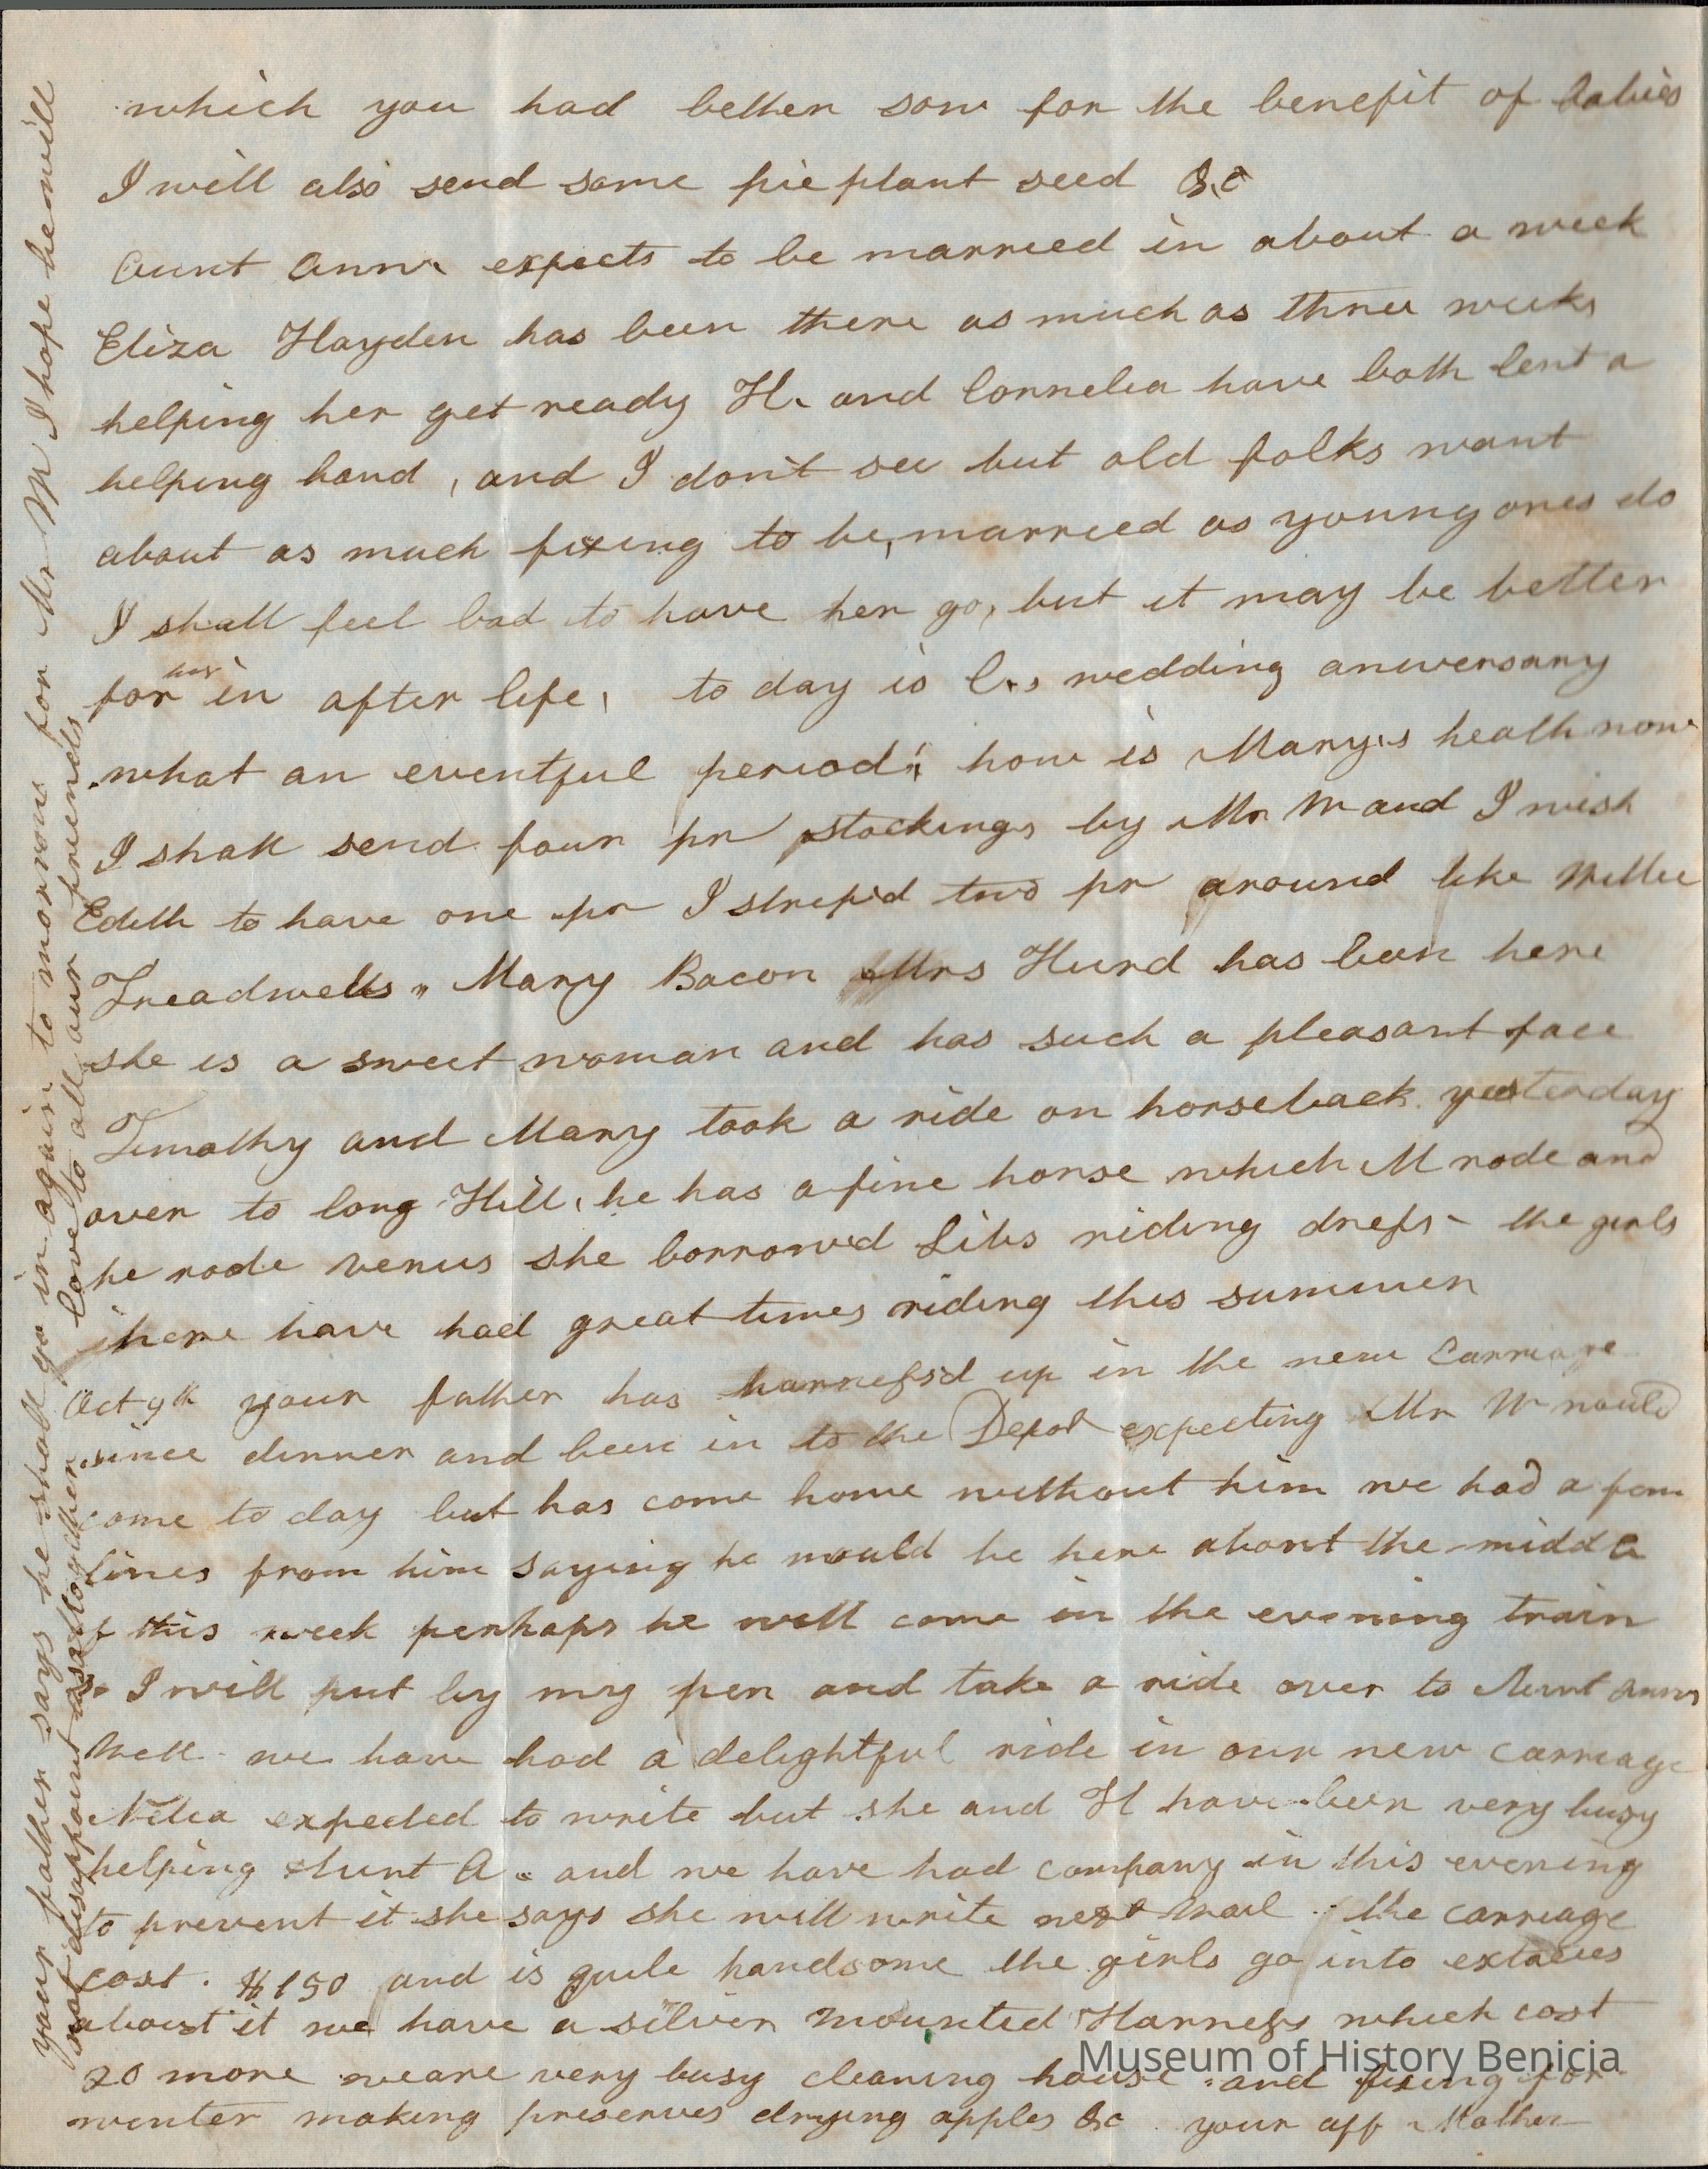 which you had better sow for the benefit of babies
I will also send some pie plant seed &c
Aunt Ann expects to be married in about a week
Eliza Hayden has been there as much as three weeks
helping her get ready H. and Cornelia have both lent a
helping hand, and I don't see but old folks want
about as much fixing to be, married as young ones do
I shall feel bad to have her go, but it may be better
for her in after life, to day is C.s wedding aniversary
what an eventful period! how is Mary's health now
I shall send four pr stockings by Mr M and I wish
Edith to have one pr I strip'd two pr around like Millie
Treadwells " Mary Bacon Mrs Hurd has been here
she is a sweet woman and has such a pleasant face
Timothy and Mary took a ride on horseback yesterday
over to long Hill, he has a fine horse which M rode and
he rode venus she borrowed Libs riding dress - the girls
here have had great times riding this summer
Oct 9th your father has harness'd up in the new Carriage
since dinner and been in to the Depot expecting Mr M would
come to day but has come home without him we had a few
lines from him saying he would be here about the middle
of this week perhaps he will come in the evening train
so I will put by my pen and take a ride over to Aunt Anns
Well - we have had a delightful ride in our new carriage
Nelia expected to write but she and H have been very busy
helping Aunt A. and we have had company in this evening
to prevent it she says she will write next Mail - the carriage
cost. $150 and is quite handsome the girls go into extacies
about it we have a silver mounted Harness which cost
20 more we are very busy cleaning house and fixing for
winter making preserves drying apples &c your aff Mother
your father says he shall go in again to morrow for Mr M I hope he will
not disappoint us altogether love to all our friends
Museum of History Benicia